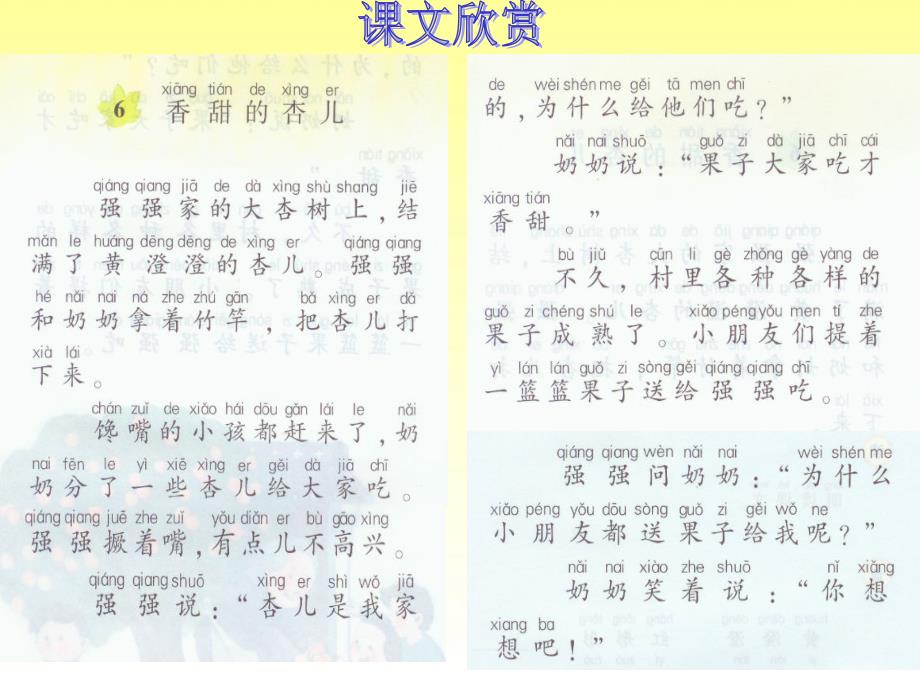 课文欣赏
xiāng tián de xìng er
6 香甜的杏儿
qiáng qiang jiā de dà xìng shù shang, jiē
强强家的大杏树上,结
mǎn le huáng dēng dēng de xìng er qiáng qiang
满了黄澄澄的杏儿。强强
hé nǎi nai ná zhe zhú gān bǎ xìng er dǎ
和奶奶拿着竹竿,把杏儿打
xià lái
下来。
chán zuǐ de xiǎo hái dōu gǎn lái le nǎi
馋嘴的小孩都赶来了,奶
nai fēn le yì xiē xìng er gěi dà jiā chī
奶分了一些杏儿给大家吃。
qiáng qiang juē zhe zuǐ yǒu diǎn er bù gāo xìng
强强撅着嘴,有点儿不高兴。
qiáng qiang shuō xìng er shì wǒ jiā
强强说:“杏儿是我家
de wèi shén me gěi tā men chī
的,为什么给他们吃?”
nǎi nai shuō guǒ zi dà jiā chī cái
奶奶说:“果子大家吃才
xiāng tián
香甜。”
bù jiǔ cūn li gè zhǒng gè yàng de
不久,村里各种各样的
guǒ zi chéng shú le xiǎo péng yǒu men tí zhe
果子成熟了。小朋友们提着
yì lán lán guǒ zi sòng gěi qiáng qiang chī
一篮篮果子送给强强吃。
qiáng qiang wèn nǎi nai wèi shén me
强强问奶奶:“为什么
xiǎo péng yǒu dōu sòng guǒ zi gěi wǒ ne
小朋友都送果子给我呢?”
nǎi nai xiào zhe shuō nǐ xiǎng
奶奶笑着说:“你想
xiang ba
想吧!”